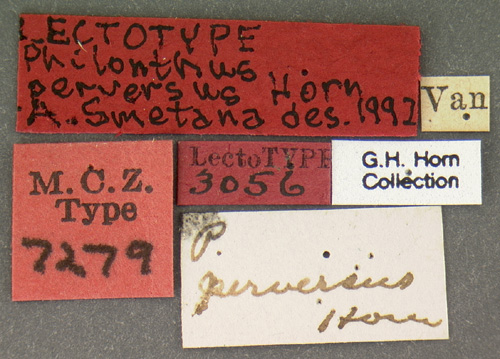 LECTOTYPE
Philonthus
perversus Horn
A. Smetana des. 1992
Van
LectoTYPE
3056
G.H. Horn
Collection
M.C.Z.
Type
7279
P.
perversus
Horn